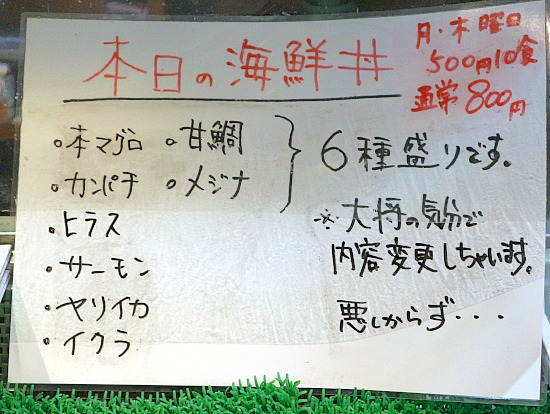 本日の海鮮丼
月・木曜日
500円10食
通常800円
・本マグロ ・甘鯛
・カンパチ ・メジナ
・ヒラス
・サーモン
・ヤリイカ
・イクラ
6種盛りです。
※大将の気分で
内容変更しちゃいます。
悪しからず・・・